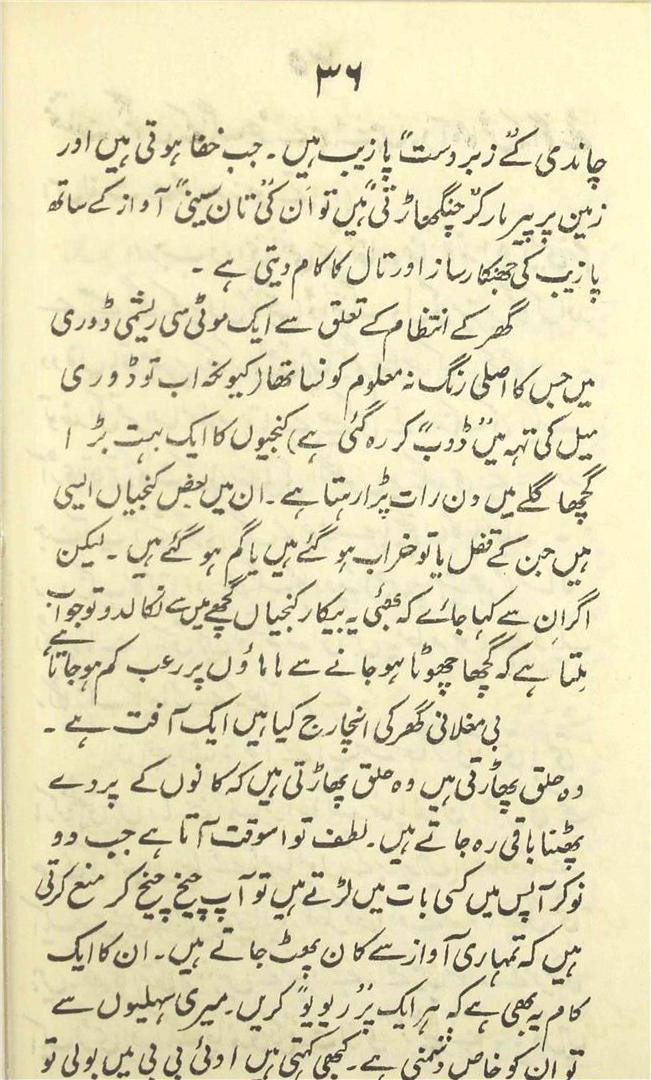 ۳۶
چاندی کے "زبردست" پازیب ہیں ۔ جب خفا ہوتی ہیں اور
زمین پر پیر مار کر "چنگھاڑتی" ہیں تو اُن کی "تان سینی" آواز کے ساتھ
پازیب کی جھنکار ساز اور تال کا کام دیتی ہے ۔
گھر کے انتظام کے تعلق سے ایک موٹی سی ریشمی ڈوری
میں جس کا اصلی رنگ نہ معلوم کونسا تھا (کیونکہ اب تو ڈوری
میل کی تہہ میں "ڈوب" کر رہ گئی ہے) کنجیوں کا ایک بہت بڑا
گچھا گلے میں دن رات پڑا رہتا ہے ۔ ان میں بعض کنجیاں ایسی
ہیں جن کے قفل یا تو خراب ہو گئے ہیں یا گم ہو گئے ہیں ۔ لیکن
اگر اِن سے کہا جائے کہ بھئی یہ بیکار کنجیاں گچھے میں سے نکالدو تو جواب
مِلتا ہے کہ گچھا چھوٹا ہو جانے سے ماماؤں پر رعب کم ہو جاتا ہے
بی مغلانی گھر کی انچارج کیا ہیں ایک آفت ہے ۔
وہ حلق پھاڑتی ہیں وہ حلق پھاڑتی ہیں کہ کانوں کے پردے
پھٹنا باقی رہ جاتے ہیں ۔ لطف تو اسوقت آتا ہے جب دو
نوکر آپس میں کسی بات میں لڑتے ہیں تو آپ چیخ چیخ کر منع کرتی
ہیں کہ تمہاری آواز سے کان پھوٹ جاتے ہیں ۔ ان کا ایک
کام یہ بھی ہے کہ ہر ایک پر "ریویو" کریں ۔ میری سہلیوں سے
تو ان کو خاص دشمنی ہے ۔ کبھی کہتی ہیں اوئی بی بی میں بولی تو